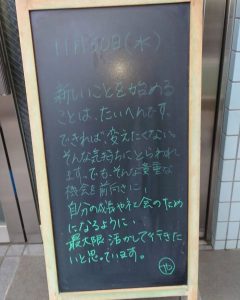 11月30日(水)
新しいことを始める
ことは、たいへんです。
できれば、変えたくない。
そんな気持ちにとらわれ
ます。でも、そんな貴重な
機会を前向きに!
自分の成長や社会のため
になるように、
最大限活かして行きた
いと思っています。